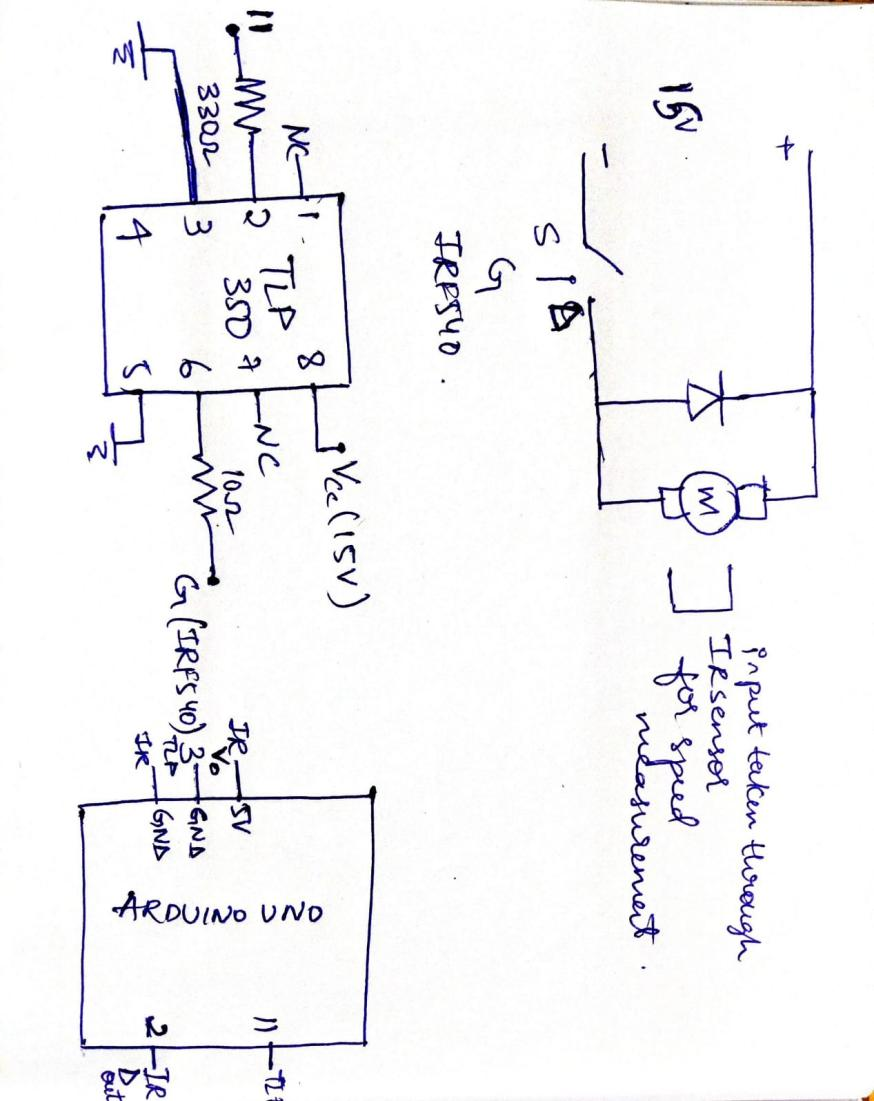 +
15V
-
S
D
G
IRF540.
M
input taken through
IRsensor
for speed
measurement.
11
330Ω
NC
1
2
3
4
TLP
350
8
7
6
5
Vcc (15V)
NC
10Ω
G (IRF540)
IR
V0
3
TLP
IR
5V
GND
GND
ARDUINO UNO
11
2
IR
out